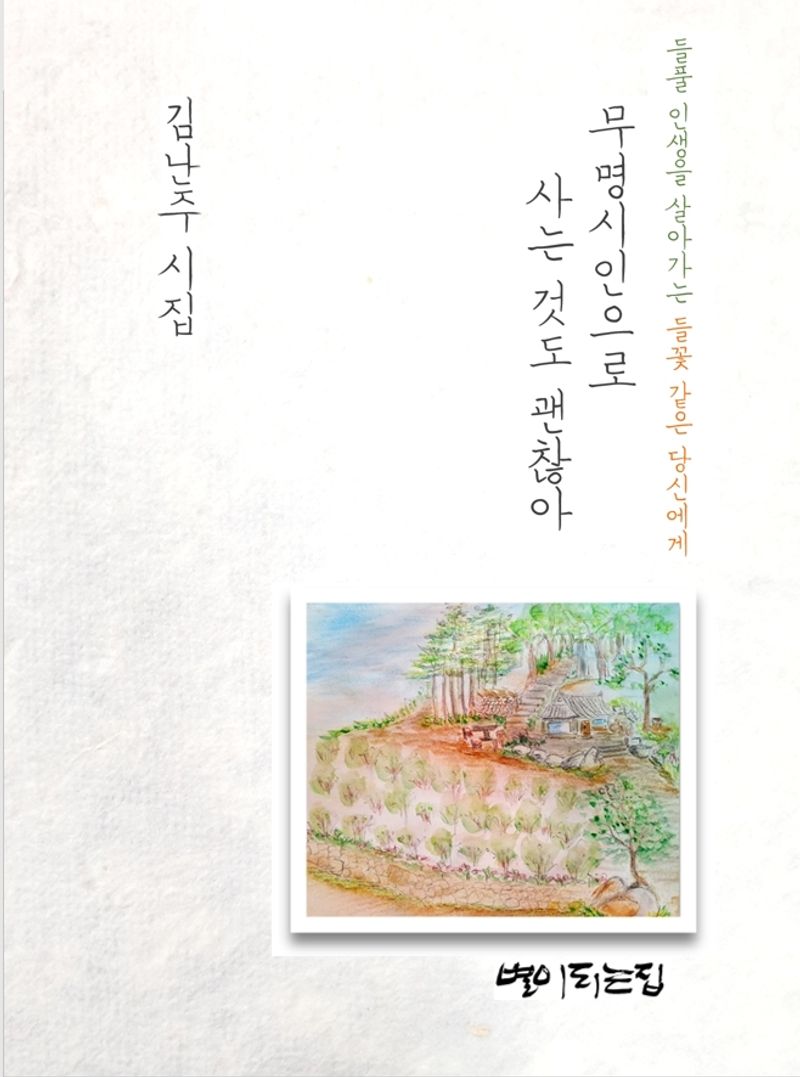 들풀 인생을 살아가는 들꽃 같은 당신에게
무명시인으로
사는 것도 괜찮아
김난주 시집
별이되는집